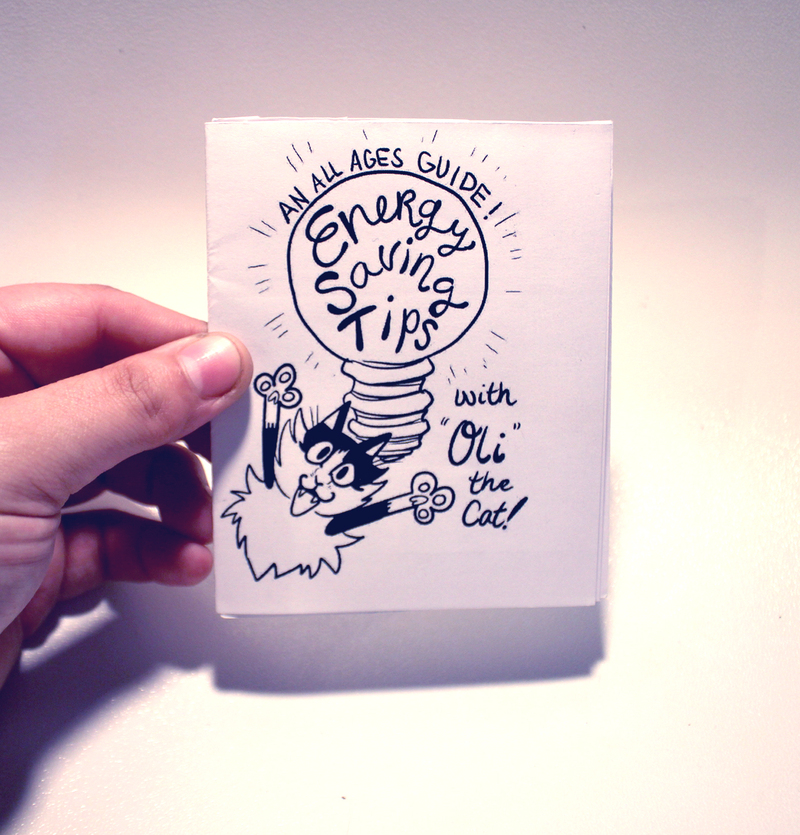 AN ALL AGES GUIDE!
Energy
Saving
Tips
with
"Oli"
the
Cat!